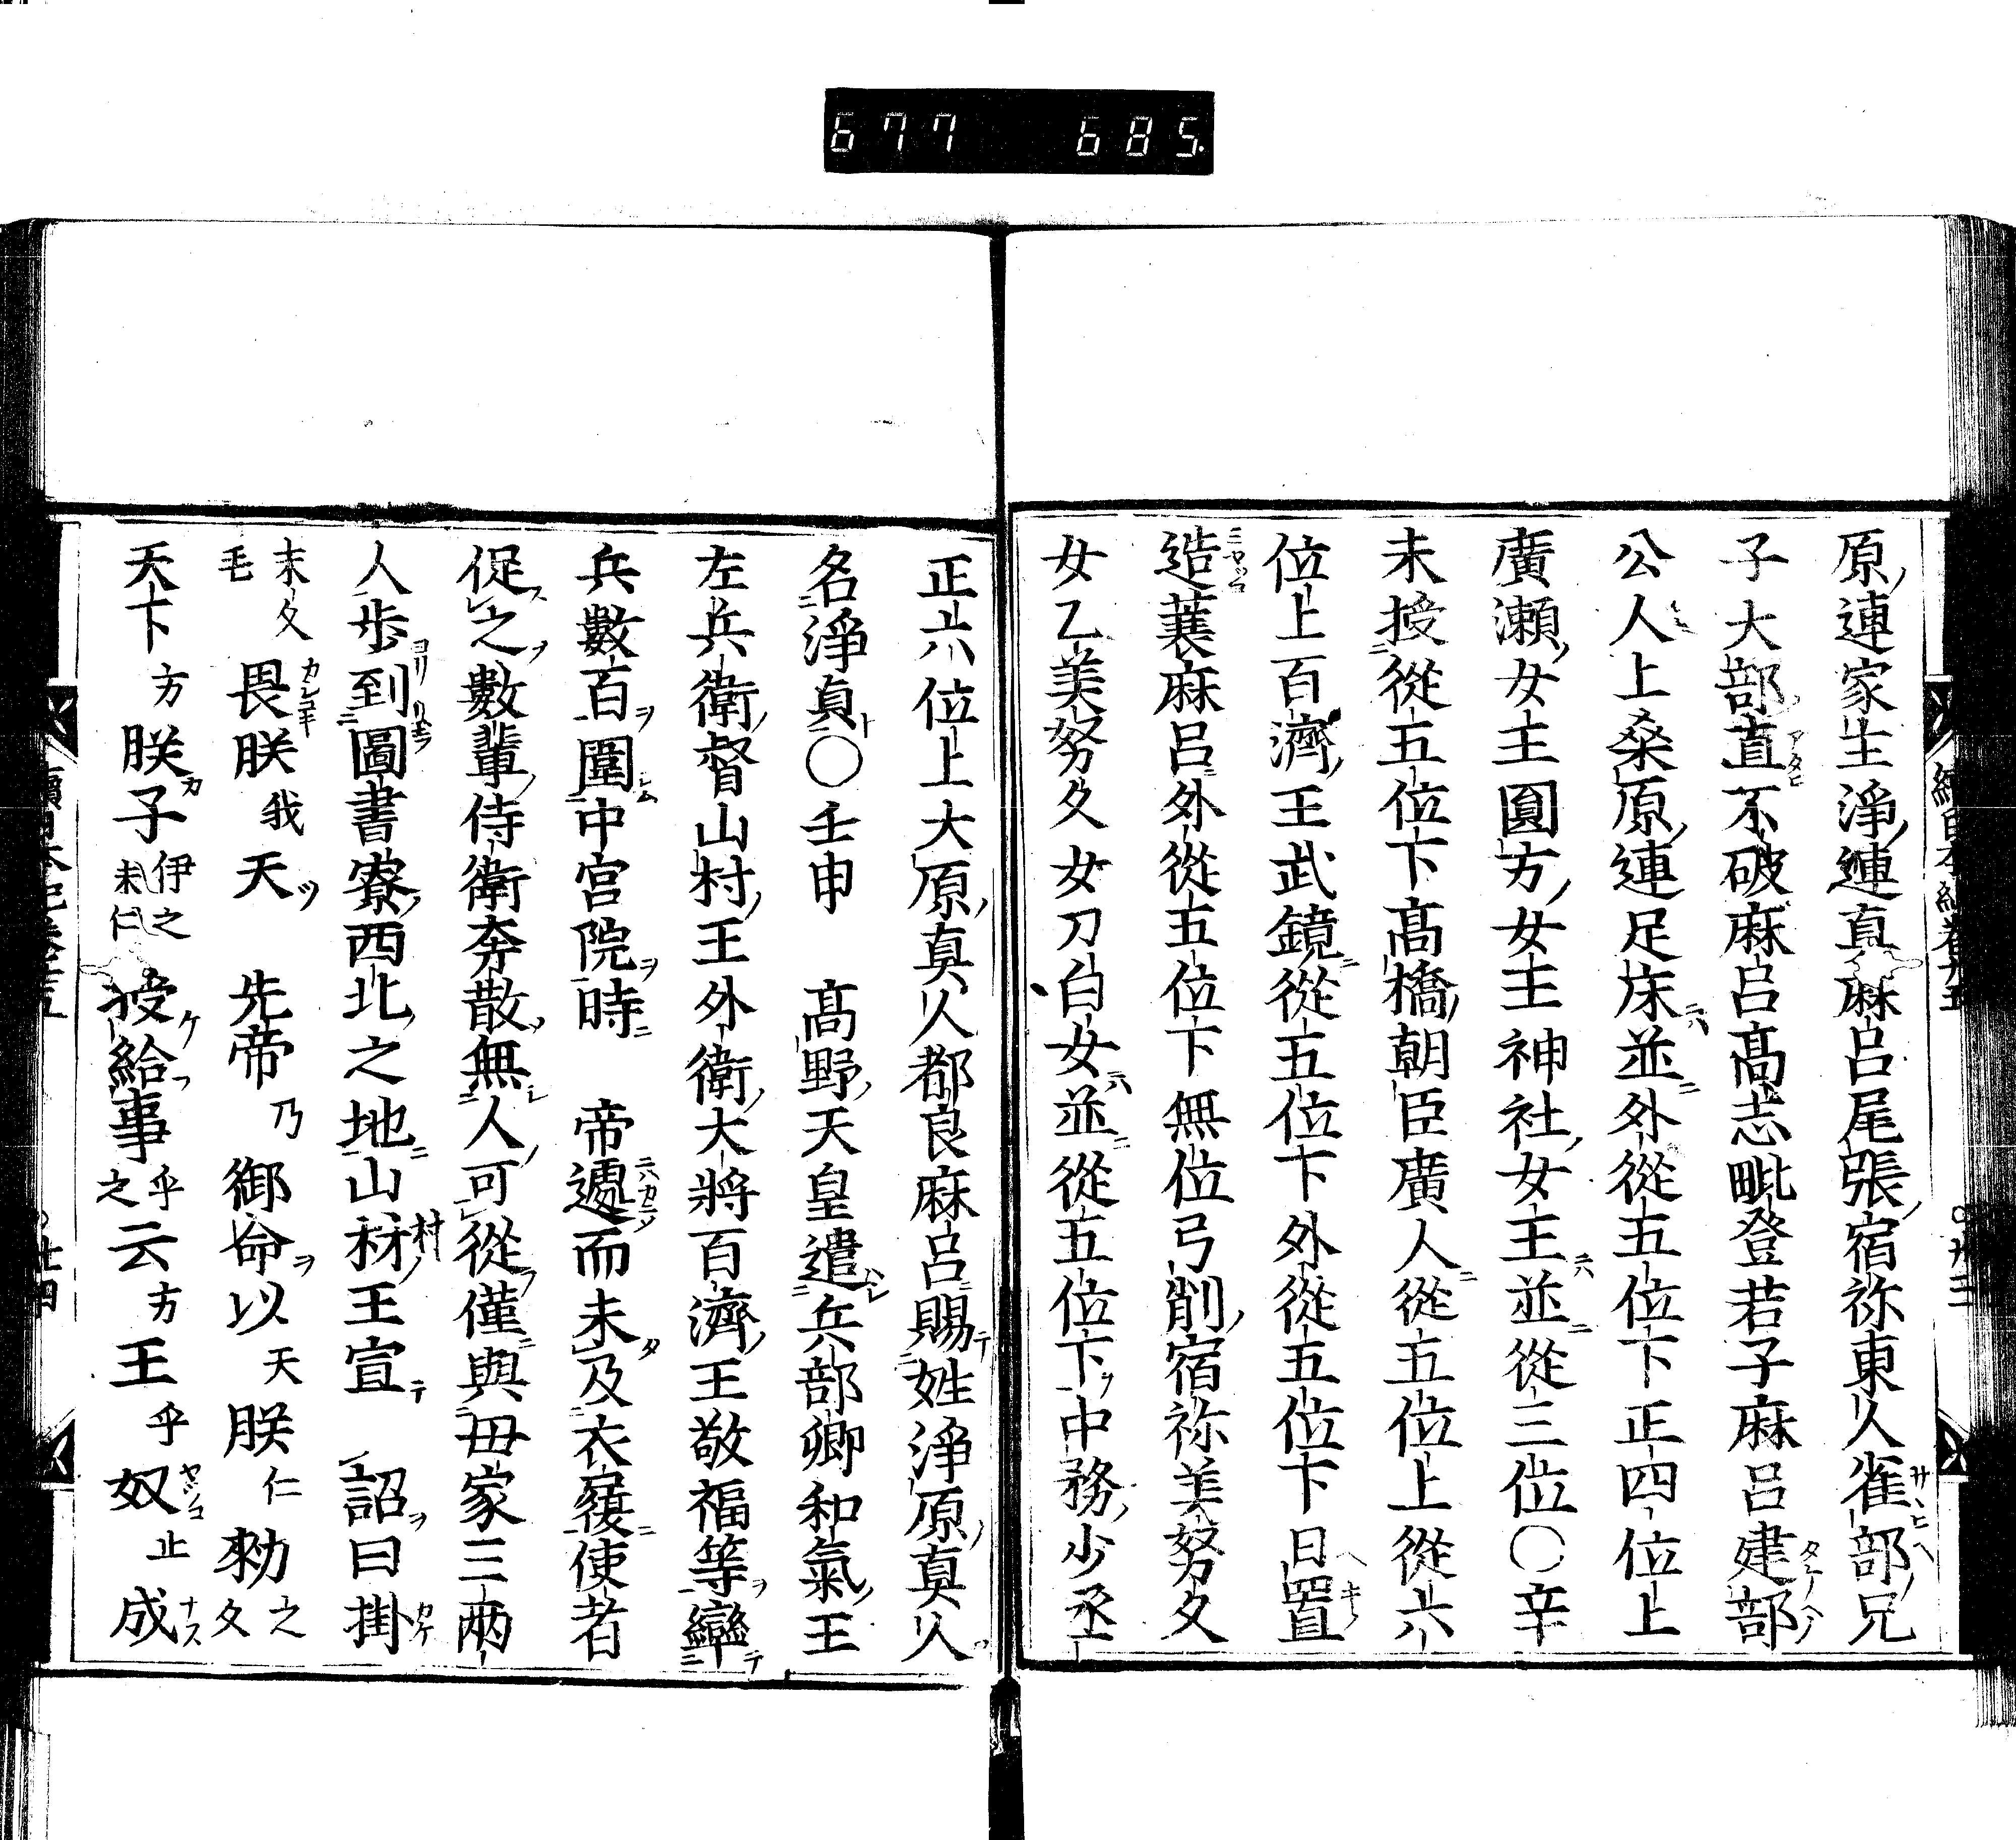 677 685
原連家生淨連真麻呂尾張宿祢東人雀部兄
子大部直不破麻呂髙志毗登若子麻呂建部
公人上桑原連足床並外從五位下正四位上
廣瀬女王圓方女王神社女王並從三位〇辛
未授從五位下髙橋朝臣廣人從五位上從六
位上百濟王武鏡從五位下外從五位下日置
造蓑麻呂外從五位下無位弓削宿祢美努久
女乙美努久女刀自女並從五位下中務少丞
正六位上大原真人都良麻呂賜姓淨原真人
名淨貞〇壬申　髙野天皇遣兵部卿和氣王
左兵衛督山村王外衛大將百濟王敬福等率
兵數百圍中宮院時　帝遽而未及衣履使者
促之數輩侍衛奔散無人可從僅與母家三兩
人歩到圖書寮西北之地山村王宣　詔曰掛
末久毛畏朕我天　先帝乃御命以天朕仁勅之久
天下方朕子伊之末仁授給事乎之云方王乎奴止成